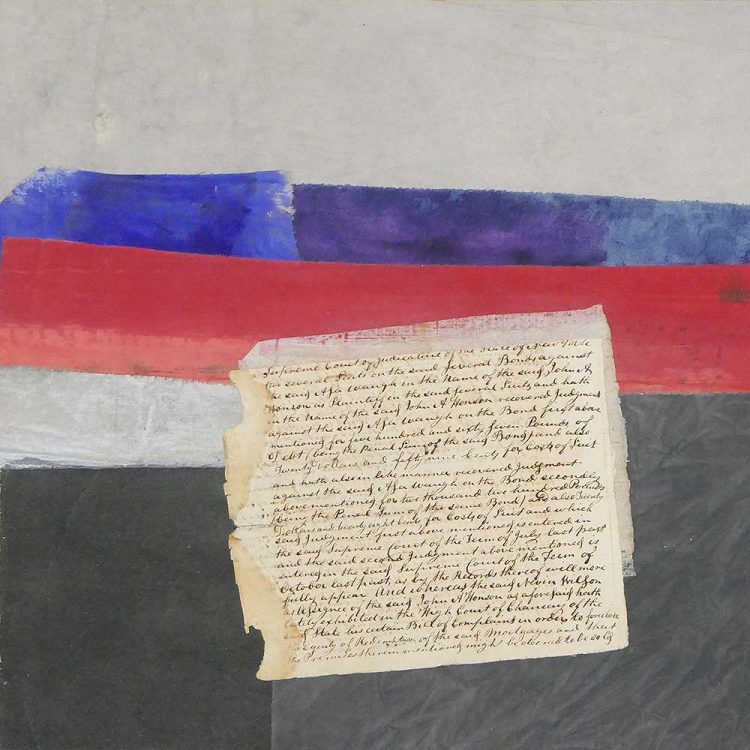 Supreme Court of Judicature of the State of New York
two several Suits on the said several Bonds against
the said Asa Waugh in the Name of the said John A
Honson as Plaintiff in the said several Suits and hath
in the Name of the said John A Honson recovered Judgment
against the said Asa Waugh on the Bond first above
mentioned for five hundred and sixty seven Pounds of
Debt (being the Penal Sum of the said Bond) and also
Twenty Dollars and fifty nine Cents for Costs of Suit
and hath also in like manner recovered Judgment
against the said Asa Waugh on the Bond secondly
above mentioned for two thousand two hundred Pounds
(being the Penal Sum of the same Bond) and also Twenty
Dollars and twenty eight Cents for Costs of Suit and which
said Judgment first above mentioned is entered in
the said Supreme Court of the Term of July last past
and the said second Judgment above mentioned is
entered in the said Supreme Court of the Term of
October last past, as by the Records thereof will more
fully appear And whereas the said Nevin Wilson
as Assignee of the said John A Honson as aforesaid hath
lately exhibited in the High Court of Chancery of the
said State his certain Bill of Complaint in order to foreclose
the equity of Redemption of the said Mortgages and that
the Premises therein mentioned might be decreed to be sold